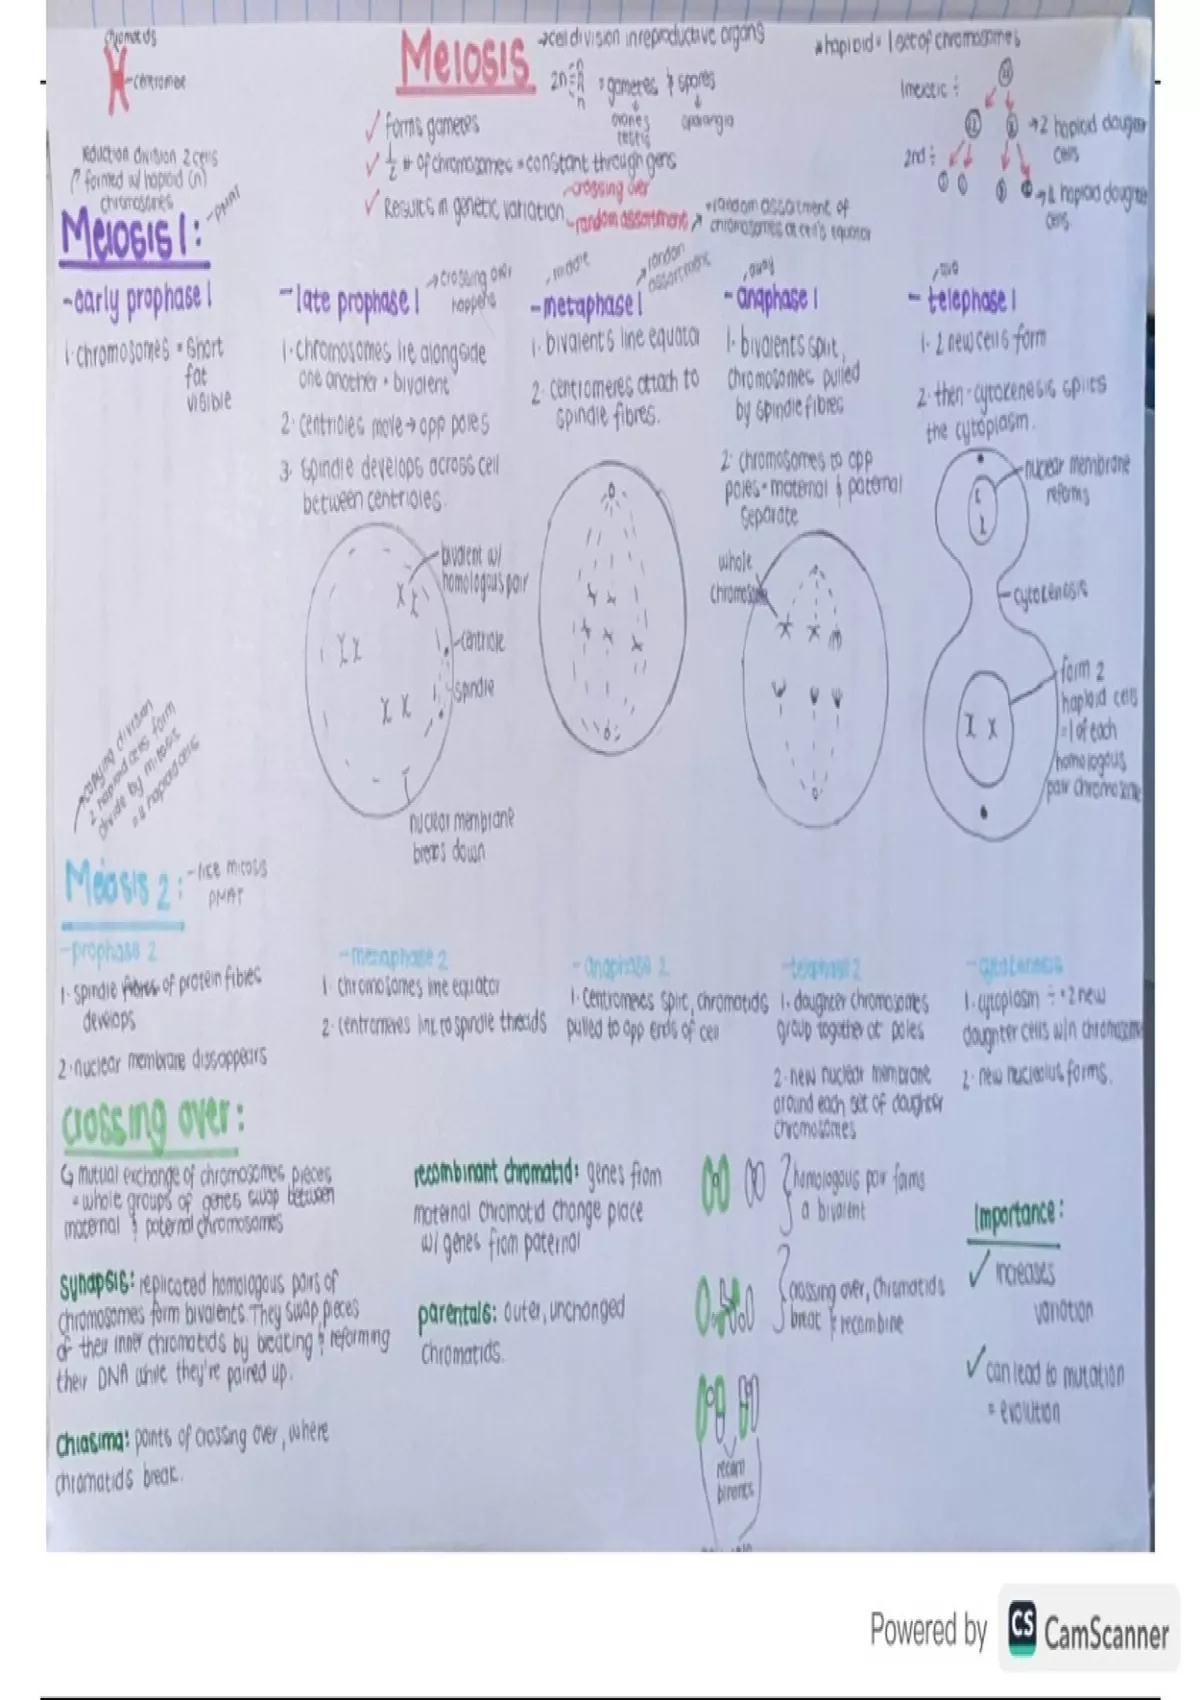 chromatids
centromere
MEIOSIS
→cell division in reproductive organs
2n
n
n
n
= gametes & spores
ovaries
testis
sporangia
✓ forms gametes
✓ 1/2 # of chromosomes = constant through gens
✓ Results in genetic variation
-crossing over
-random assortment
=random assortment of
chromosomes at cell's equator
* haploid = 1 set of chromosomes
1 meiotic ÷
→2 haploid daugter
cells
2nd ÷
→4 haploid daugter
cells.
reduction division 2 cells
formed w/ haploid (n)
chromosomes
MEIOSIS 1:
-early prophase 1
1· chromosomes = short
fat
visible
-late prophase 1
→crossing over
happens
1· chromosomes lie alongside
one another = bivalent
2· centrioles move → opp poles
3· spindle develops across cell
between centrioles.
bivalent w/
homologous pair
centriole
spindle
nuclear membrane
breaks down
middle
random
assortment
-metaphase 1
1· bivalents line equator
2· centromeres attach to
spindle fibres.
away
-anaphase 1
1· bivalents split,
chromosomes pulled
by spindle fibres
2· chromosomes to opp
poles = maternal & paternal
separate
whole
chromosome
- telephase 1
1· 2 new cells form
2· then - cytokenesis splits
the cytoplasm.
nuclear membrane
reforms
cytokenosis
form 2
haploid cells
=1 of each
homologous
pair chromosome
copying division
2 haploid cells form
divide by mitosis
= 4 haploid cells
Meiosis 2:
-like mitosis
PMAT
-prophase 2
1· spindle fibres of protein fibres
develops
2· nuclear membrane dissappears
-metaphase 2
1· chromosomes line equator
2· centromeres link to spindle threads
-anaphase 2
1· Centromeres split, chromatids
pulled to opp ends of cell
-telophase 2
1· daughter chromosomes
group together at poles
2· new nuclear membrane
around each set of daughter
chromosomes
-cytokenesis
1· cytoplasm ÷ = 2 new
daughter cells w/n chromosome
2· new nucleolus forms.
crossing over:
↳ mutual exchange of chromosomes pieces
= whole groups of genes swap between
maternal & paternal chromosomes
synapsis: replicated homologous pairs of
chromosomes form bivalents. They swap pieces
of their inner chromatids by breaking & reforming
their DNA while they're paired up.
chiasma: points of crossing over, where
chromatids break.
recombinant chromatid: genes from
maternal chromatid change place
w/ genes from paternal
parentals: outer, unchanged
chromatids.
homologous pair forms
a bivalent
crossing over, chromatids
break & recombine
recom
binants
Importance:
✓ increases
variation
✓ can lead to mutation
= evolution
Powered by CS CamScanner